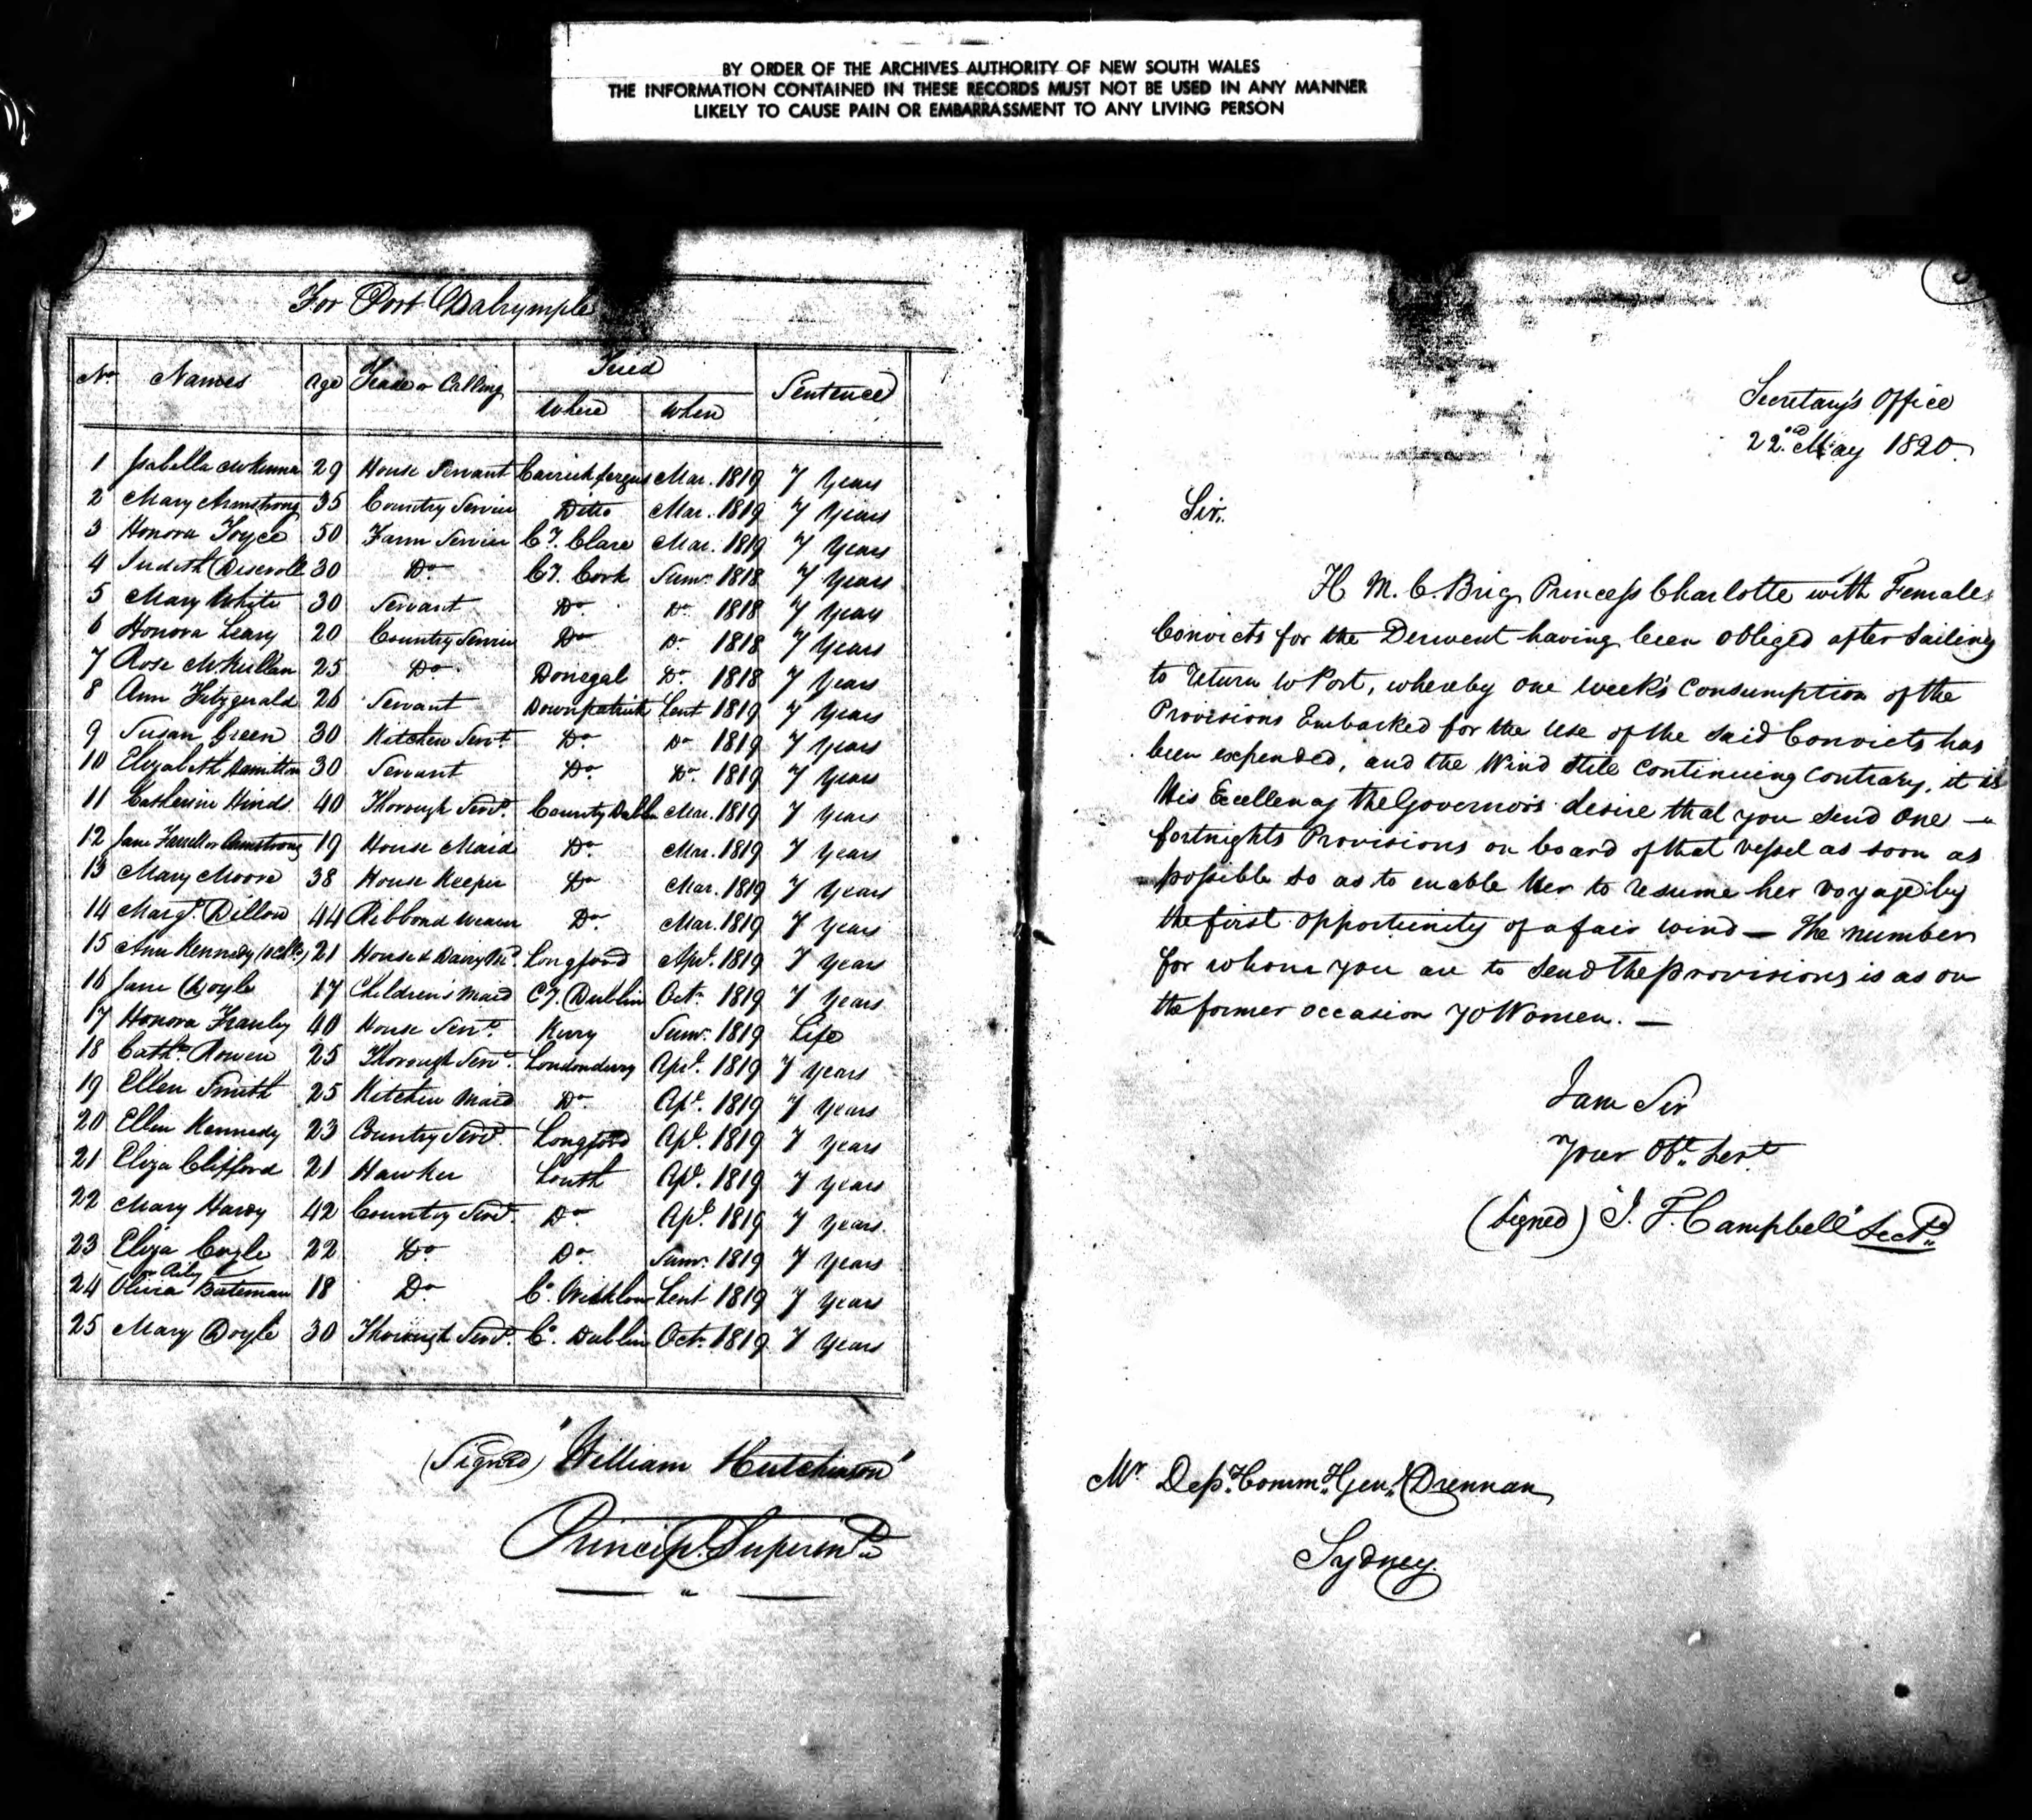 BY ORDER OF THE ARCHIVES AUTHORITY OF NEW SOUTH WALES
THE INFORMATION CONTAINED IN THESE RECORDS MUST NOT BE USED IN ANY MANNER
LIKELY TO CAUSE PAIN OR EMBARRASSMENT TO ANY LIVING PERSON
For Port Dalrymple
No. Names Age Trade or Calling Tried Sentence
Where When
1 Isabella McKenna 29 House Servant Carrickfergus Mar. 1819 7 Years
2 Mary Armstrong 35 Country Servt Ditto Mar. 1819 7 Years
3 Honora Joyce 50 Farm Servt Cy. Clare Mar. 1819 7 Years
4 Judith Driscoll 30 Do. Cy. Cork Sumr. 1818 7 Years
5 Mary White 30 Servant Do. Do. 1818 7 Years
6 Honora Leary 20 Country Servt Do. Do. 1818 7 Years
7 Rose McMullan 25 Do. Donegal Do. 1818 7 Years
8 Ann Fitzgerald 26 Servant Downpatrick Lent 1819 7 Years
9 Susan Green 30 Kitchen Servt. Do. Do. 1819 7 Years
10 Elizabeth Hamilton 30 Servant Do. Do. 1819 7 Years
11 Catherine Hinds 40 Thorough Servt. County Dublin Mar. 1819 7 Years
12 Jane Farrell or Armstrong 19 House Maid Do. Mar. 1819 7 Years
13 Mary Moore 38 House Keeper Do. Mar. 1819 7 Years
14 Margt. Dillon 44 Ribbond weaver Do. Mar. 1819 7 Years
15 Ann Kennedy 21 House & Dairy Md. Longford Apl. 1819 7 Years
16 Jane Doyle 17 Children's Maid Cy. Dublin Octr. 1819 7 Years
17 Honora 40 House Servt. Kerry Sumr. 1819 Life
18 Cathe. Rowen 25 Thorough Servt. Londonderry Apl. 1819 7 Years
19 Ellen Smith 25 Kitchen Maid Do. Apl. 1819 7 Years
20 Ellen Kennedy 23 Country Servt. Longford Apl. 1819 7 Years
21 Eliza Clifford 21 Hawker Louth Apl. 1819 7 Years
22 Mary Hardy 42 Country Servt. Do. Apl. 1819 7 Years
23 Eliza Cogle 22 Do. Do. Sumr. 1819 7 Years
or Rily
24 Olivia Bateman 18 Do. Co. Wicklow Lent 1819 7 Years
25 Mary Doyle 30 Thorough Servt. Co. Dublin Octr. 1819 7 Years
(Signed) "William Hutchinson"
Principl. Superindt.
Secretary's Office
22nd. May 1820.
Sir.
H. M. C. Brig Princess Charlotte with Female
Convicts for the Derwent having been obliged after sailing
to return to Port, whereby one week's consumption of the
Provisions Embarked for the use of the said Convicts has
been expended, and the Wind still continuing contrary, it is
His Excellency the Governor's desire that you send one —
fortnights Provisions on board of that vessel as soon as
possible so as to enable Her to resume her voyage by
the first opportunity of a fair wind — The number
for whom you are to send the provisions is as on
the former occasion 70 Women. —
I am Sir
Your Obt. Servt.
(Signed) "J. T. Campbell" Secty.
Mr. Depy. Commy. Genl. Drennan
Sydney.